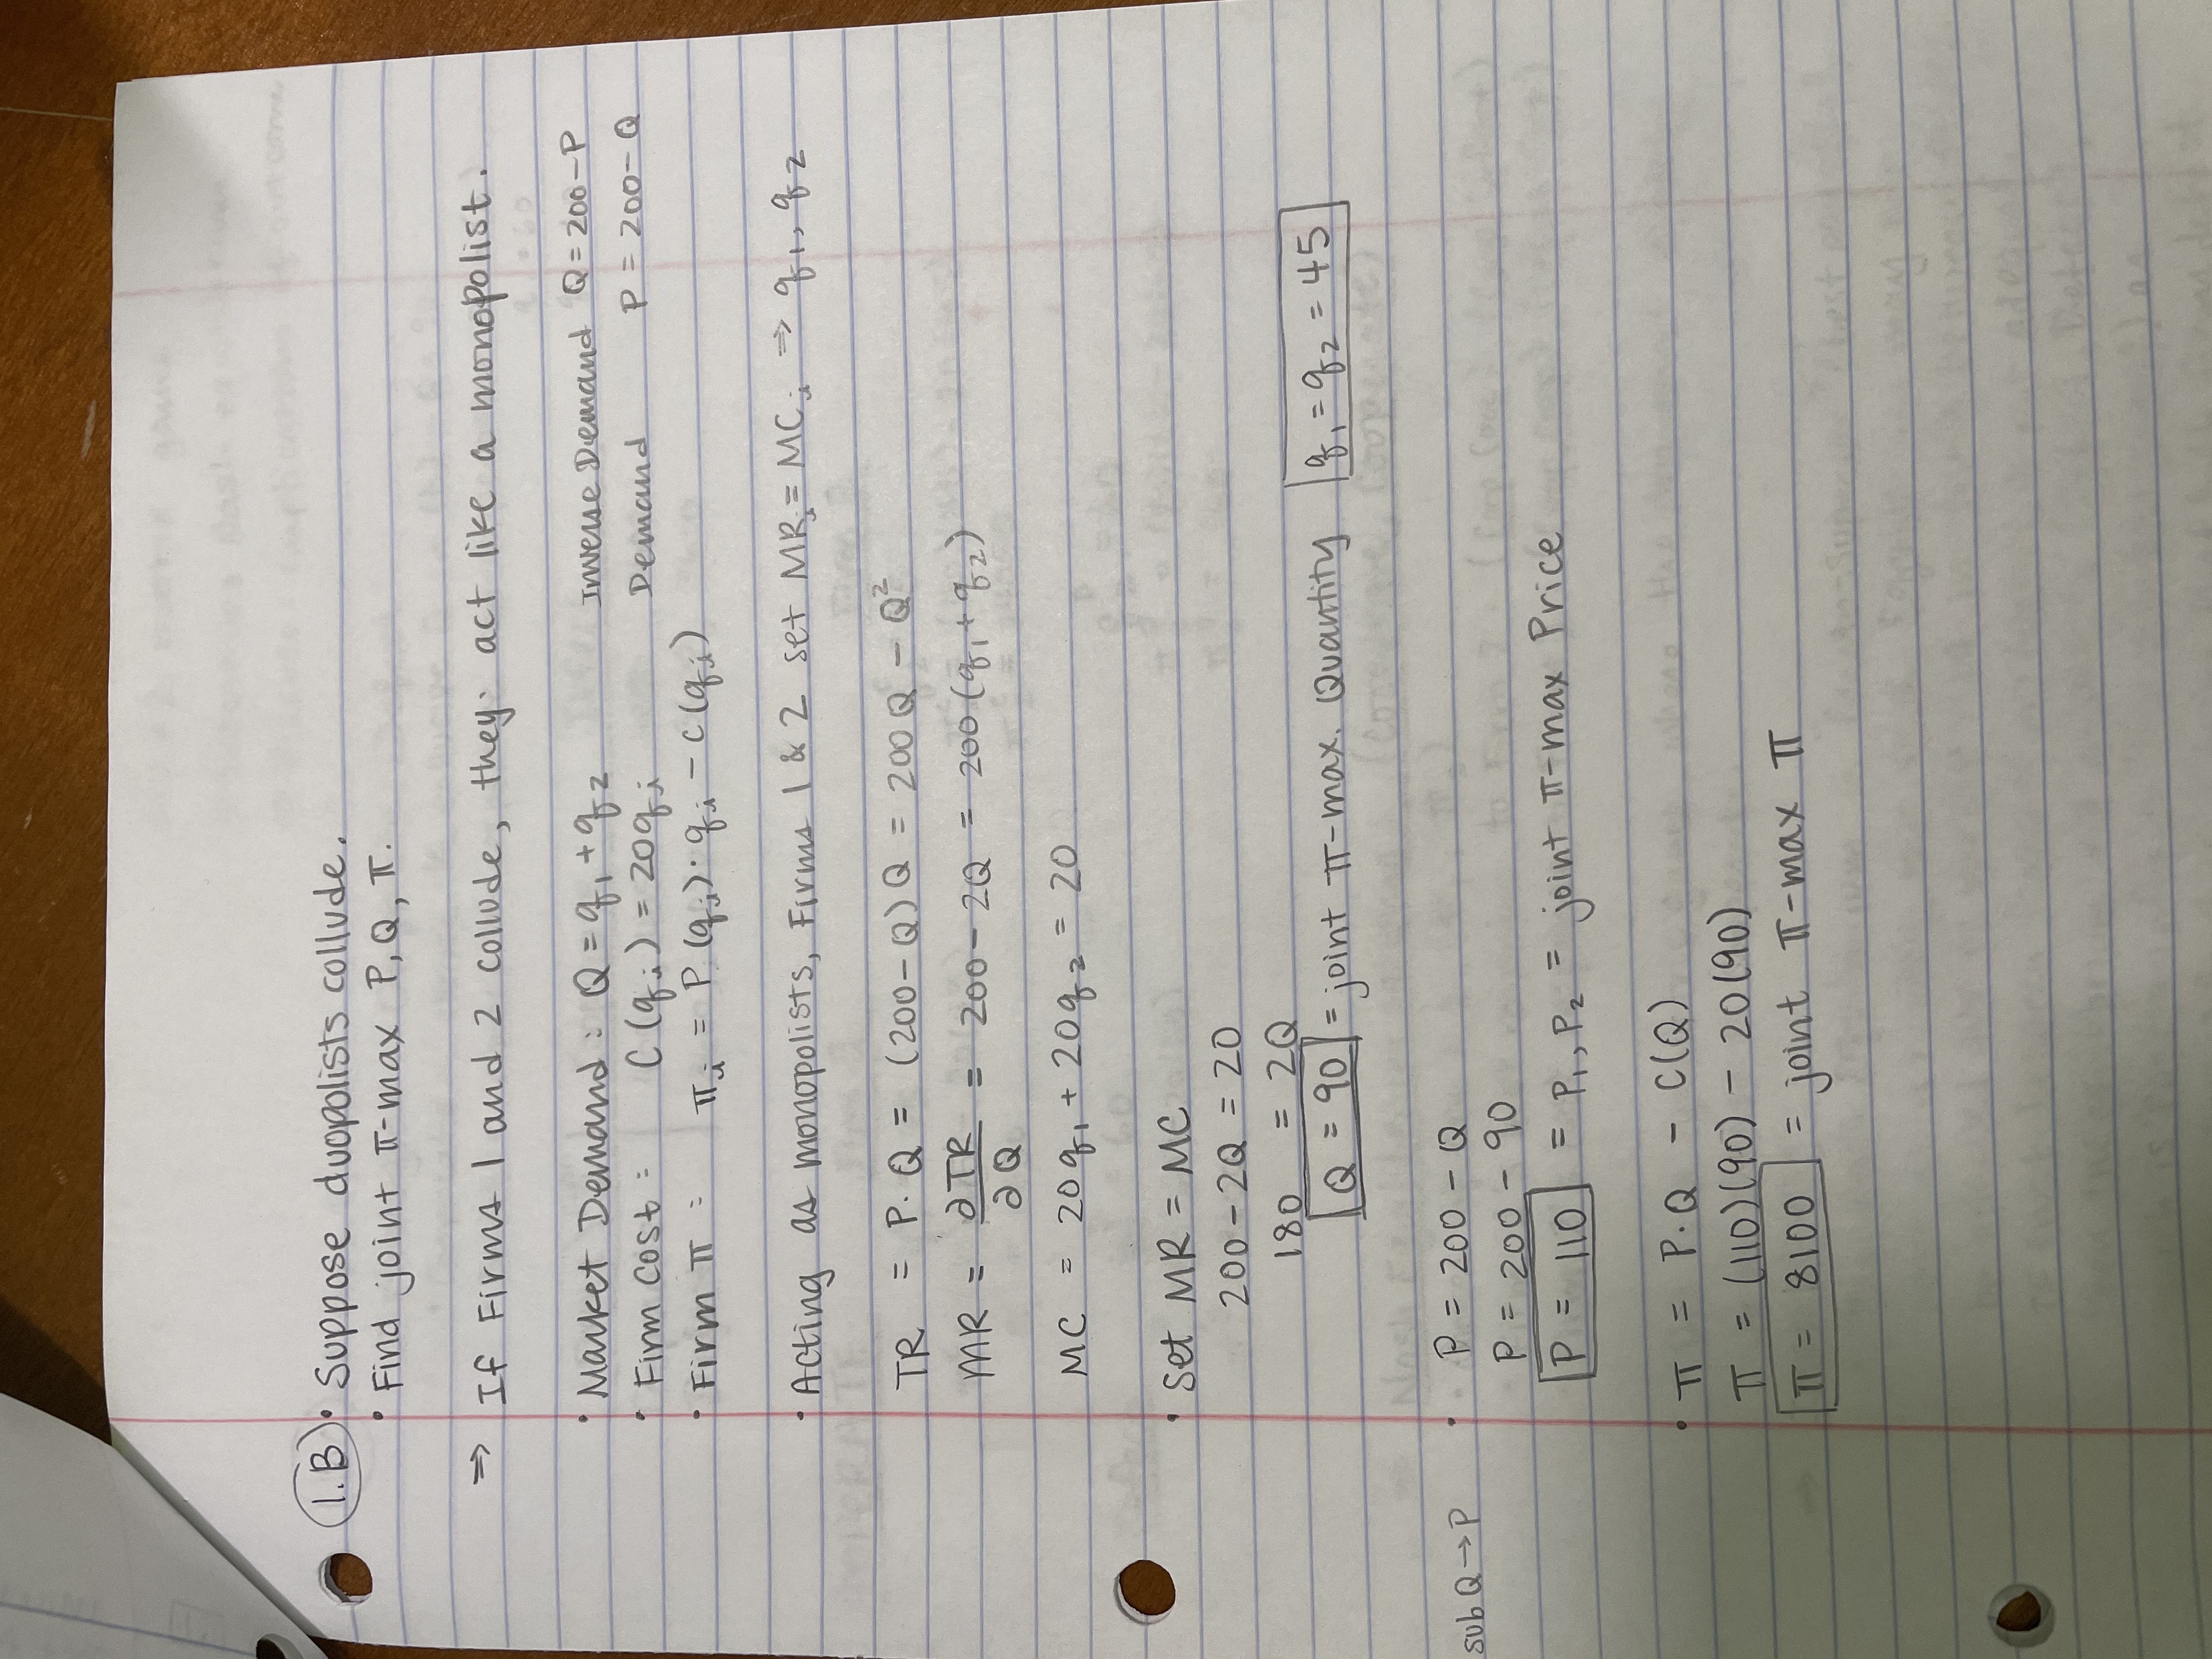 1.B) • Suppose duopolists collude.
• Find joint π-max P, Q, π.
⇒ If Firms 1 and 2 collude, they: act like a monopolist.
• Market Demand: Q = q₁ + q₂ Inverse Demand Q = 200 - P
• Firm cost: C(qᵢ) = 20qᵢ Demand P = 200 - Q
• Firm π: πᵢ = P(qᵢ)·qᵢ - C(qᵢ)
• Acting as monopolists, Firms 1 & 2 set MRᵢ = MCᵢ ⇒ q₁, q₂
TR = P·Q = (200-Q)Q = 200Q - Q²
MR = ∂TR/∂Q = 200 - 2Q = 200(q₁ + q₂)
MC = 20q₁ + 20q₂ = 20
• Set MR = MC
200 - 2Q = 20
180 = 2Q
Q = 90 = joint π-max. Quantity q₁ = q₂ = 45
sub Q → P • P = 200 - Q
P = 200 - 90
P = 110 = P₁, P₂ = joint π-max Price
• π = P·Q - C(Q)
π = (110)(90) - 20(90)
π = 8100 = joint π-max π